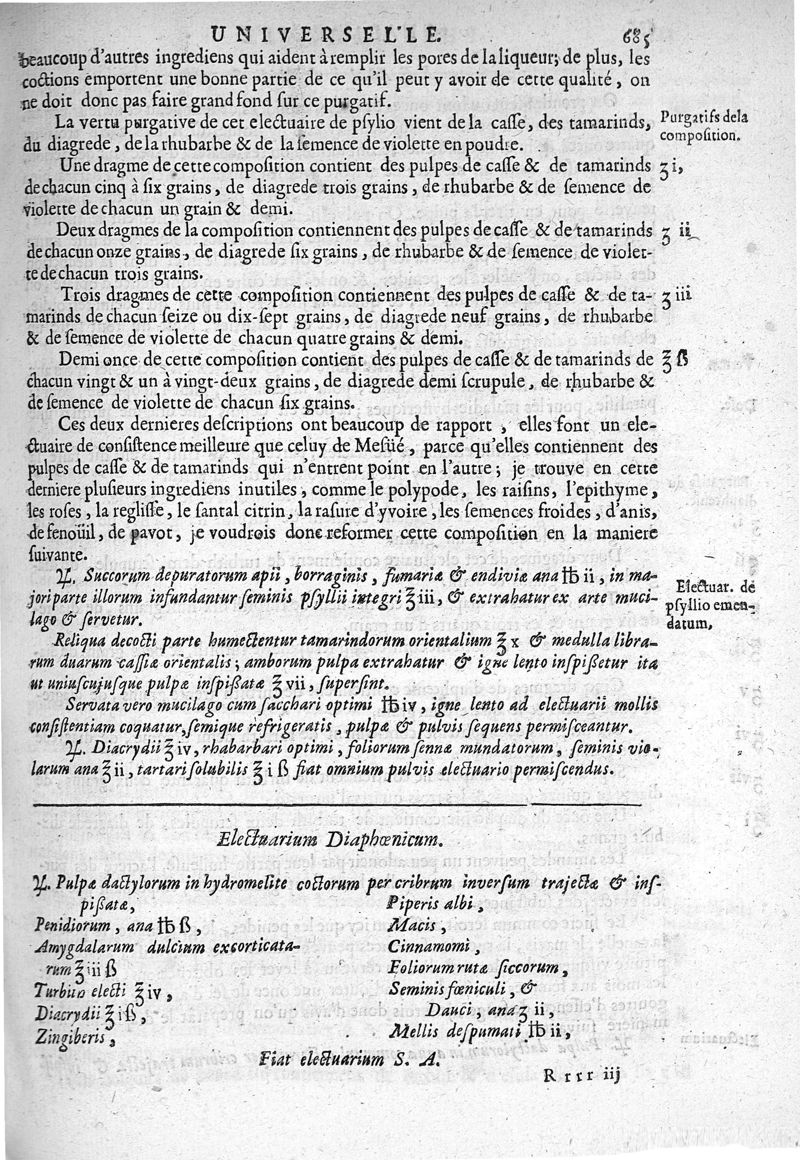 UNIVERSELLE. 685
beaucoup d'autres ingrediens qui aident à remplir les pores de la liqueur; de plus, les
coctions emportent une bonne partie de ce qu'il peut y avoir de cette qualité, on
ne doit donc pas faire grand fond ſur ce purgatif.
La vertu purgative de cet electuaire de pſylio vient de la caſſe, des tamarinds,
du diagrede, de la rhubarbe & de la ſemence de violette en poudre.
Purgatifs de la
compoſition.
Une dragme de cette compoſition contient des pulpes de caſſe & de tamarinds
ʒ i,
de chacun cinq à ſix grains, de diagrede trois grains, de rhubarbe & de ſemence de
violette de chacun un grain & demi.
Deux dragmes de la compoſition contiennent des pulpes de caſſe & de tamarinds
ʒ ii
de chacun onze grains, de diagrede ſix grains, de rhubarbe & de ſemence de violet-
te de chacun trois grains.
Trois dragmes de cette compoſition contiennent des pulpes de caſſe & de ta-
ʒ iii
marinds de chacun ſeize ou dix-ſept grains, de diagrede neuf grains, de rhubarbe
& de ſemence de violette de chacun quatre grains & demi.
Demi once de cette compoſition contient des pulpes de caſſe & de tamarinds de
℥ ß
chacun vingt & un à vingt-deux grains, de diagrede demi ſcrupule, de rhubarbe &
de ſemence de violette de chacun ſix grains.
Ces deux dernieres deſcriptions ont beaucoup de rapport, elles font un ele-
ctuaire de conſiſtence meilleure que celuy de Meſüé, parce qu'elles contiennent des
pulpes de caſſe & de tamarinds qui n'entrent point en l'autre; je trouve en cette
derniere pluſieurs ingrediens inutiles, comme le polypode, les raiſins, l'epithyme,
les roſes, la regliſſe, le ſantal citrin, la raſure d'yvoire, les ſemences froides, d'anis,
de fenoüil, de pavot, je voudrois donc reformer cette compoſition en la maniere
ſuivante.
♃. Succorum depuratorum apii, borraginis, fumariæ & endiviæ ana ℔ ii, in ma-
jori parte illorum infundantur ſeminis pſyllii integri ℥ iii, & extrahatur ex arte muci-
lago & ſervetur.
Electuar. de
pſyllio emen-
datum,
Reliqua decocti parte humectentur tamarindorum orientalium ℥ x & medulla libra-
rum duarum caſſiæ orientalis; amborum pulpa extrahatur & igne lento inſpiſſetur ita
ut uniuſcujuſque pulpæ inſpiſſatæ ℥ vii, ſuperſint.
Servata vero mucilago cum ſacchari optimi ℔ iv, igne lento ad electuarii mollis
conſiſtentiam coquatur, ſemique refrigeratis, pulpæ & pulvis ſequens permiſceantur.
♃. Diacrydii ℥ iv, rhabarbari optimi, foliorum ſennæ mundatorum, ſeminis vio-
larum ana ℥ ii, tartari ſolubilis ℥ i ß fiat omnium pulvis electuario permiſcendus.
Electuarium Diaphœnicum.
♃. Pulpæ dactylorum in hydromelite coctorum per cribrum inverſum trajectæ & inſ-
piſſatæ,
Penidiorum, ana ℔ ß,
Amygdalarum dulcium excorticata-
rum ℥ iii ß
Turbith electi ℥ iv,
Diacrydii ℥ i ß,
Zingiberis,
Piperis albi,
Macis,
Cinnamomi,
Foliorum rutæ ſiccorum,
Seminis fœniculi, &
Dauci, ana ʒ ii,
Mellis deſpumati ℔ ii,
Fiat electuarium S. A.
R r r r iij